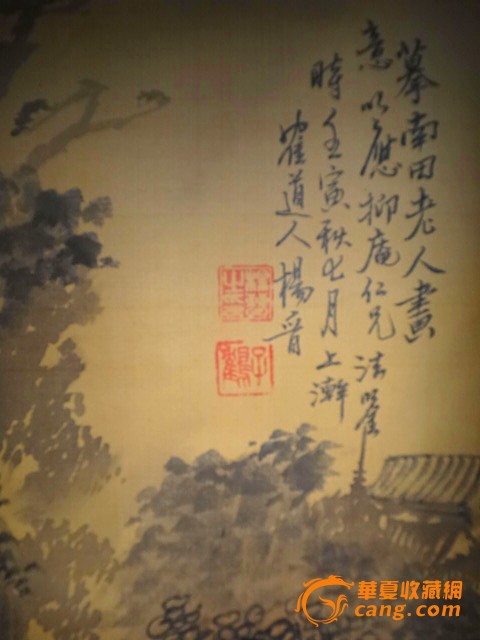 摹南田老人畫
意以應抑庵仁兄法鑒
時壬寅秋七月上澣
隺道人楊晋
子鶴
華夏收藏網
cang.com